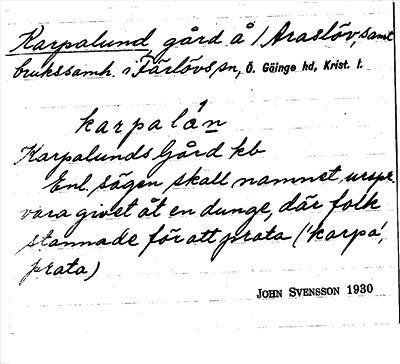 Karpalund, gård å 1 Araslöv, samt
brukssamh. i Färlövs sn, Ö. Göinge hd, Krist. l.
karpalán
Karpalunds Gård kb
Enl. sägen skall namnet urspr.
vara givet åt en dunge, där folk
stannade för att prata ('karpa',
prata)
JOHN SVENSSON 1930